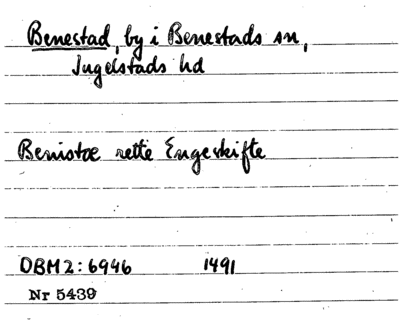 Benestad, by i Benestads sn,
Ingelstads hd
Benistæ rette Engeskifte
DBM2: 6946 1491
Nr 5439